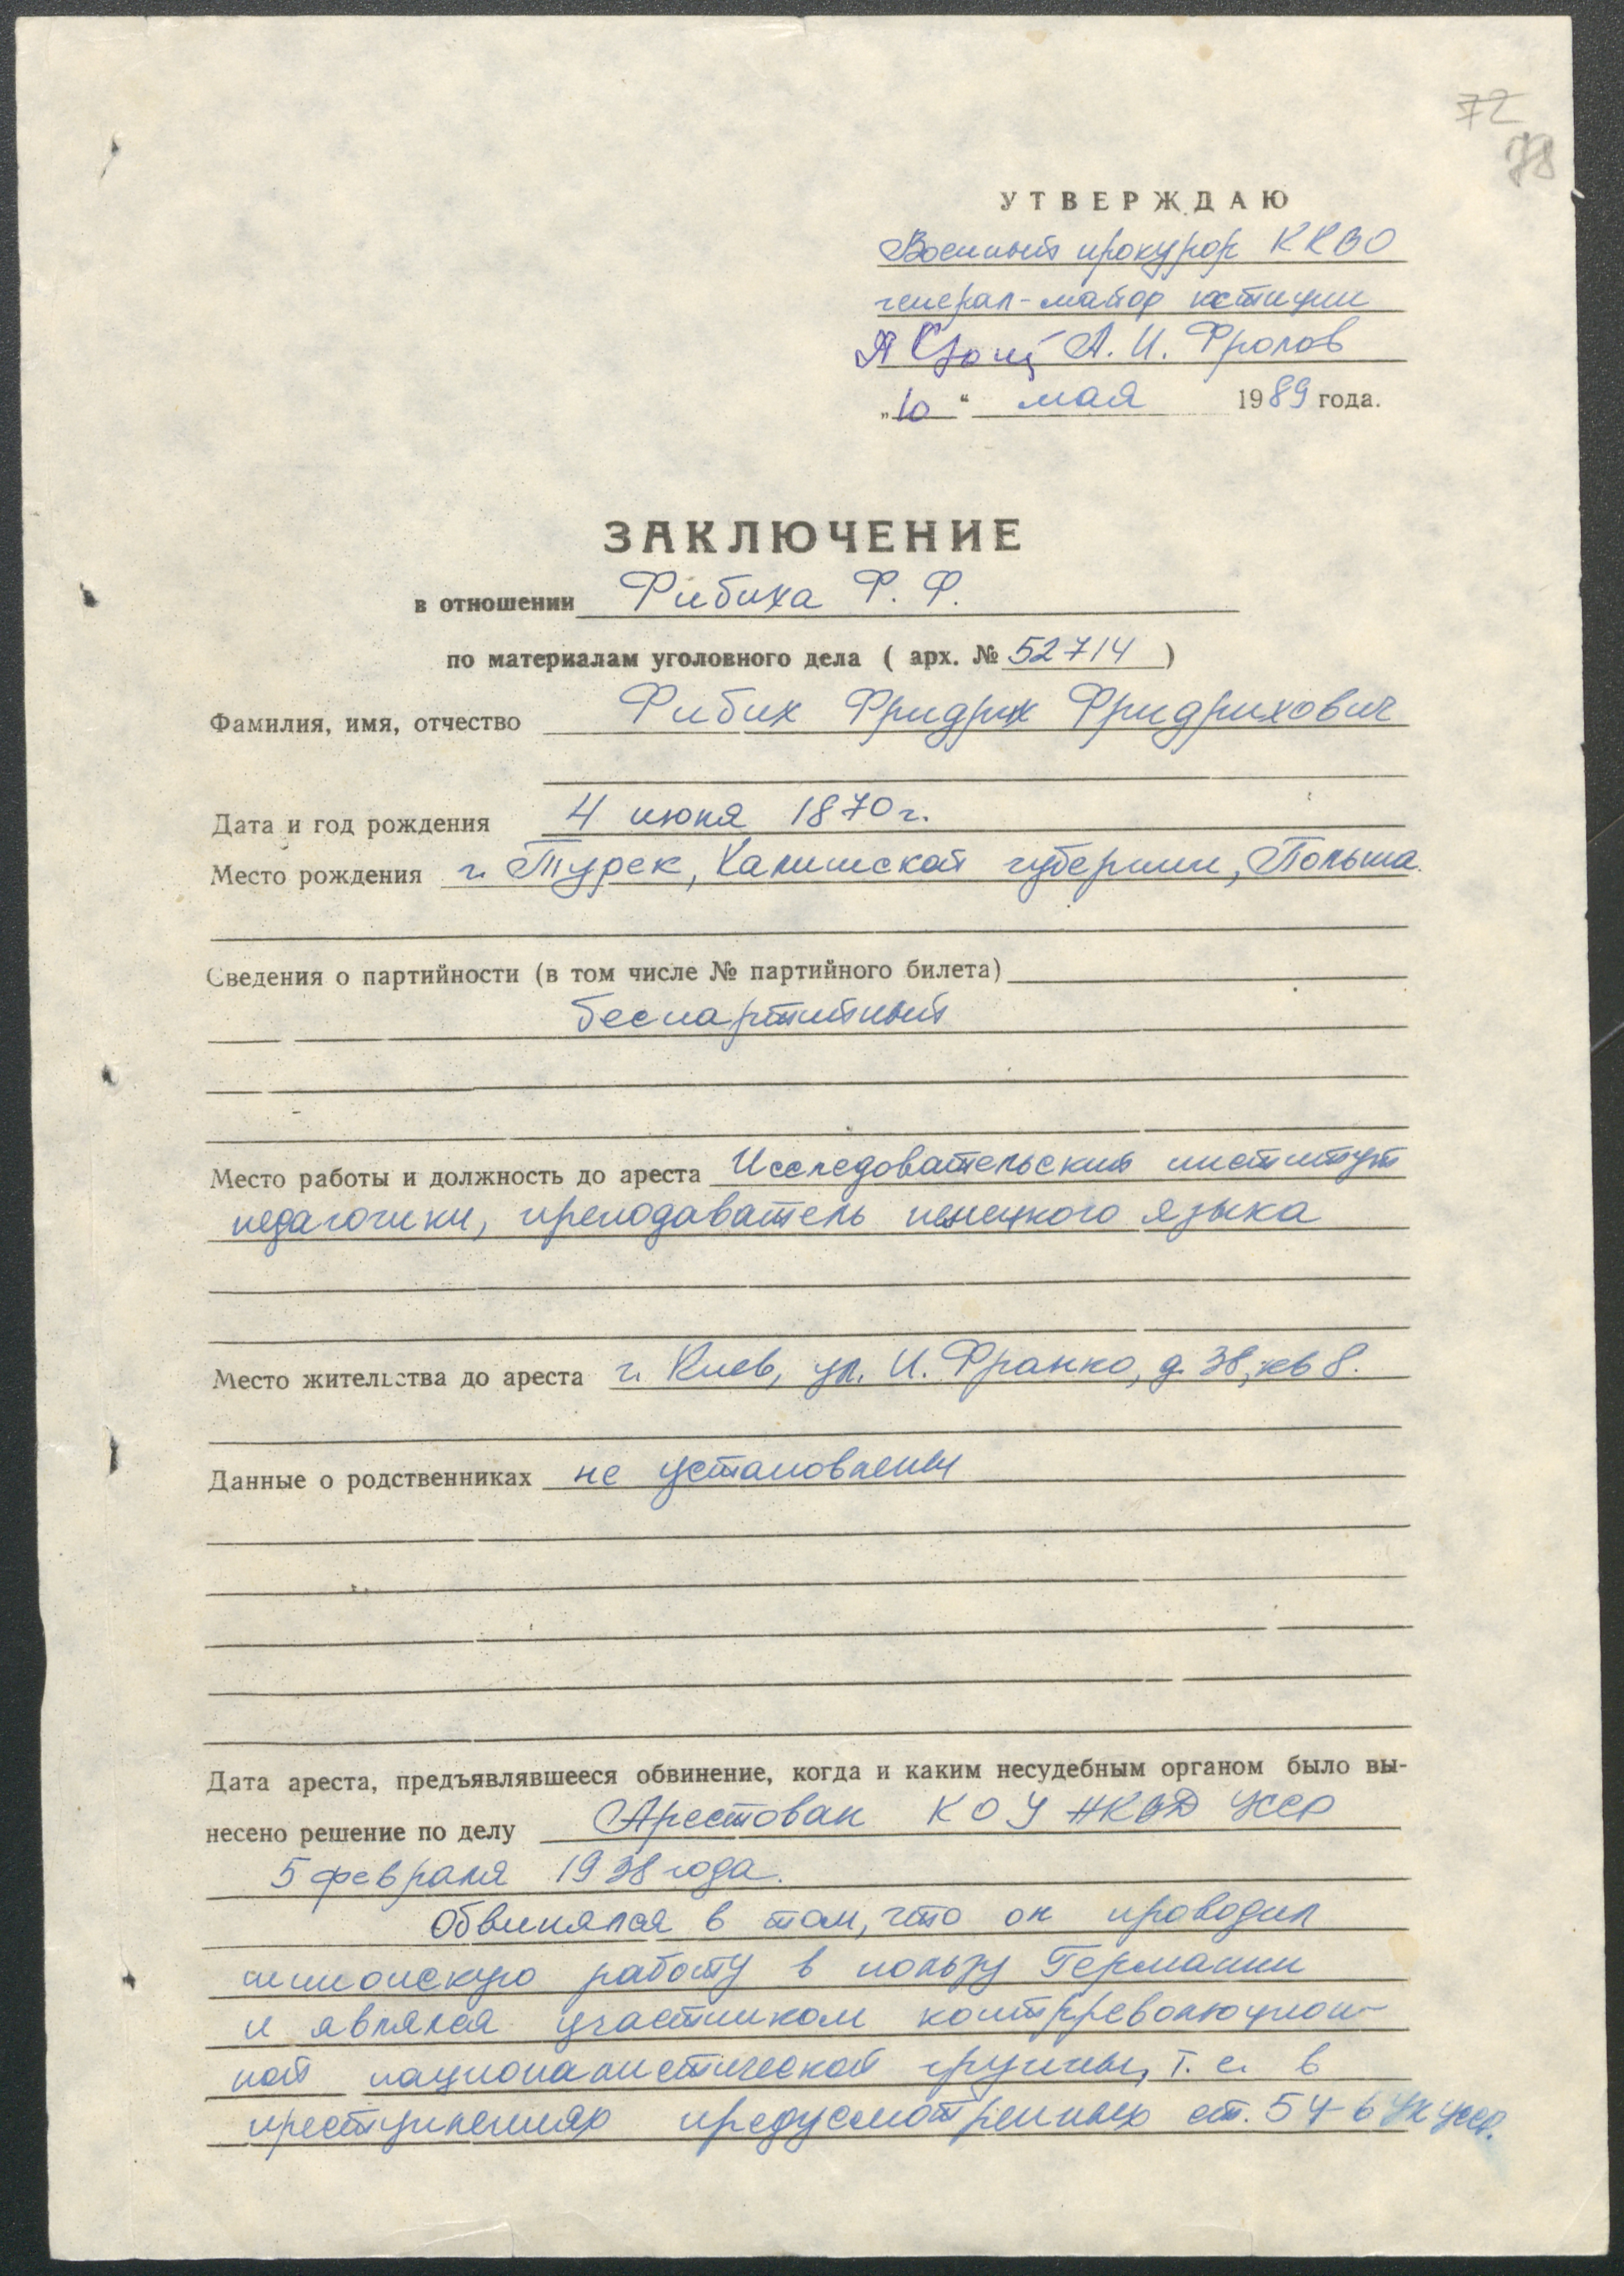 72
78
УТВЕРЖДАЮ
Военный прокурор ККВО
генерал-майор юстиции
А. И. Фролов
„10“ мая 1989 года.
ЗАКЛЮЧЕНИЕ
в отношении Фибиха Ф. Ф.
по материалам уголовного дела ( арх. № 52714 )
Фамилия, имя, отчество Фибих Фридрих Фридрихович
Дата и год рождения 4 июня 1870 г.
Место рождения г. Турек, Калишской губернии, Польша.
Сведения о партийности (в том числе № партийного билета)
беспартийный
Место работы и должность до ареста Исследовательский институт
педагогики, преподаватель немецкого языка
Место жительства до ареста г. Киев, ул. И. Франко, д. 38, кв 8.
Данные о родственниках не установлены
Дата ареста, предъявлявшееся обвинение, когда и каким несудебным органом было вы-
несено решение по делу Арестован КОУ НКВД УССР
5 февраля 1938 года.
Обвинялся в том, что он проводил
шпионскую работу в пользу Германии
и являлся участником контрреволюцион-
ной националистической группы, т. е. в
преступлениях предусмотренных ст. 54-6 УК УССР.